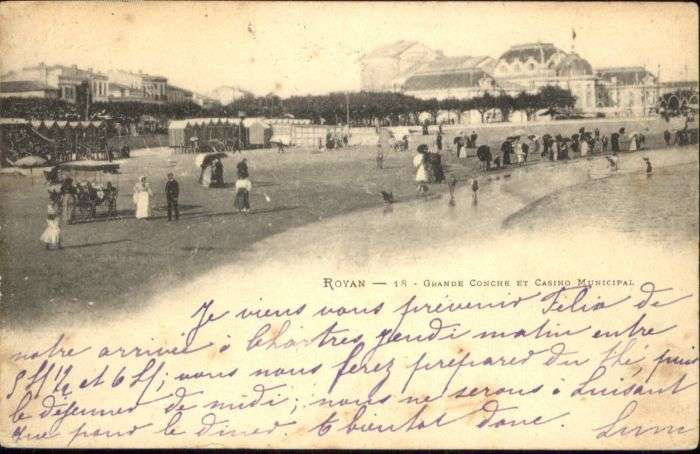 ROYAN — 18 - GRANDE CONCHE ET CASINO MUNICIPAL
Je viens vous prévenir Félia de
notre arrivée à Chartres jeudi matin entre
5h ½ et 6h; vous nous ferez préparer du thé, puis
le déjeuner de midi; nous ne serons à Luisant
que pour le dîner. A bientôt donc.